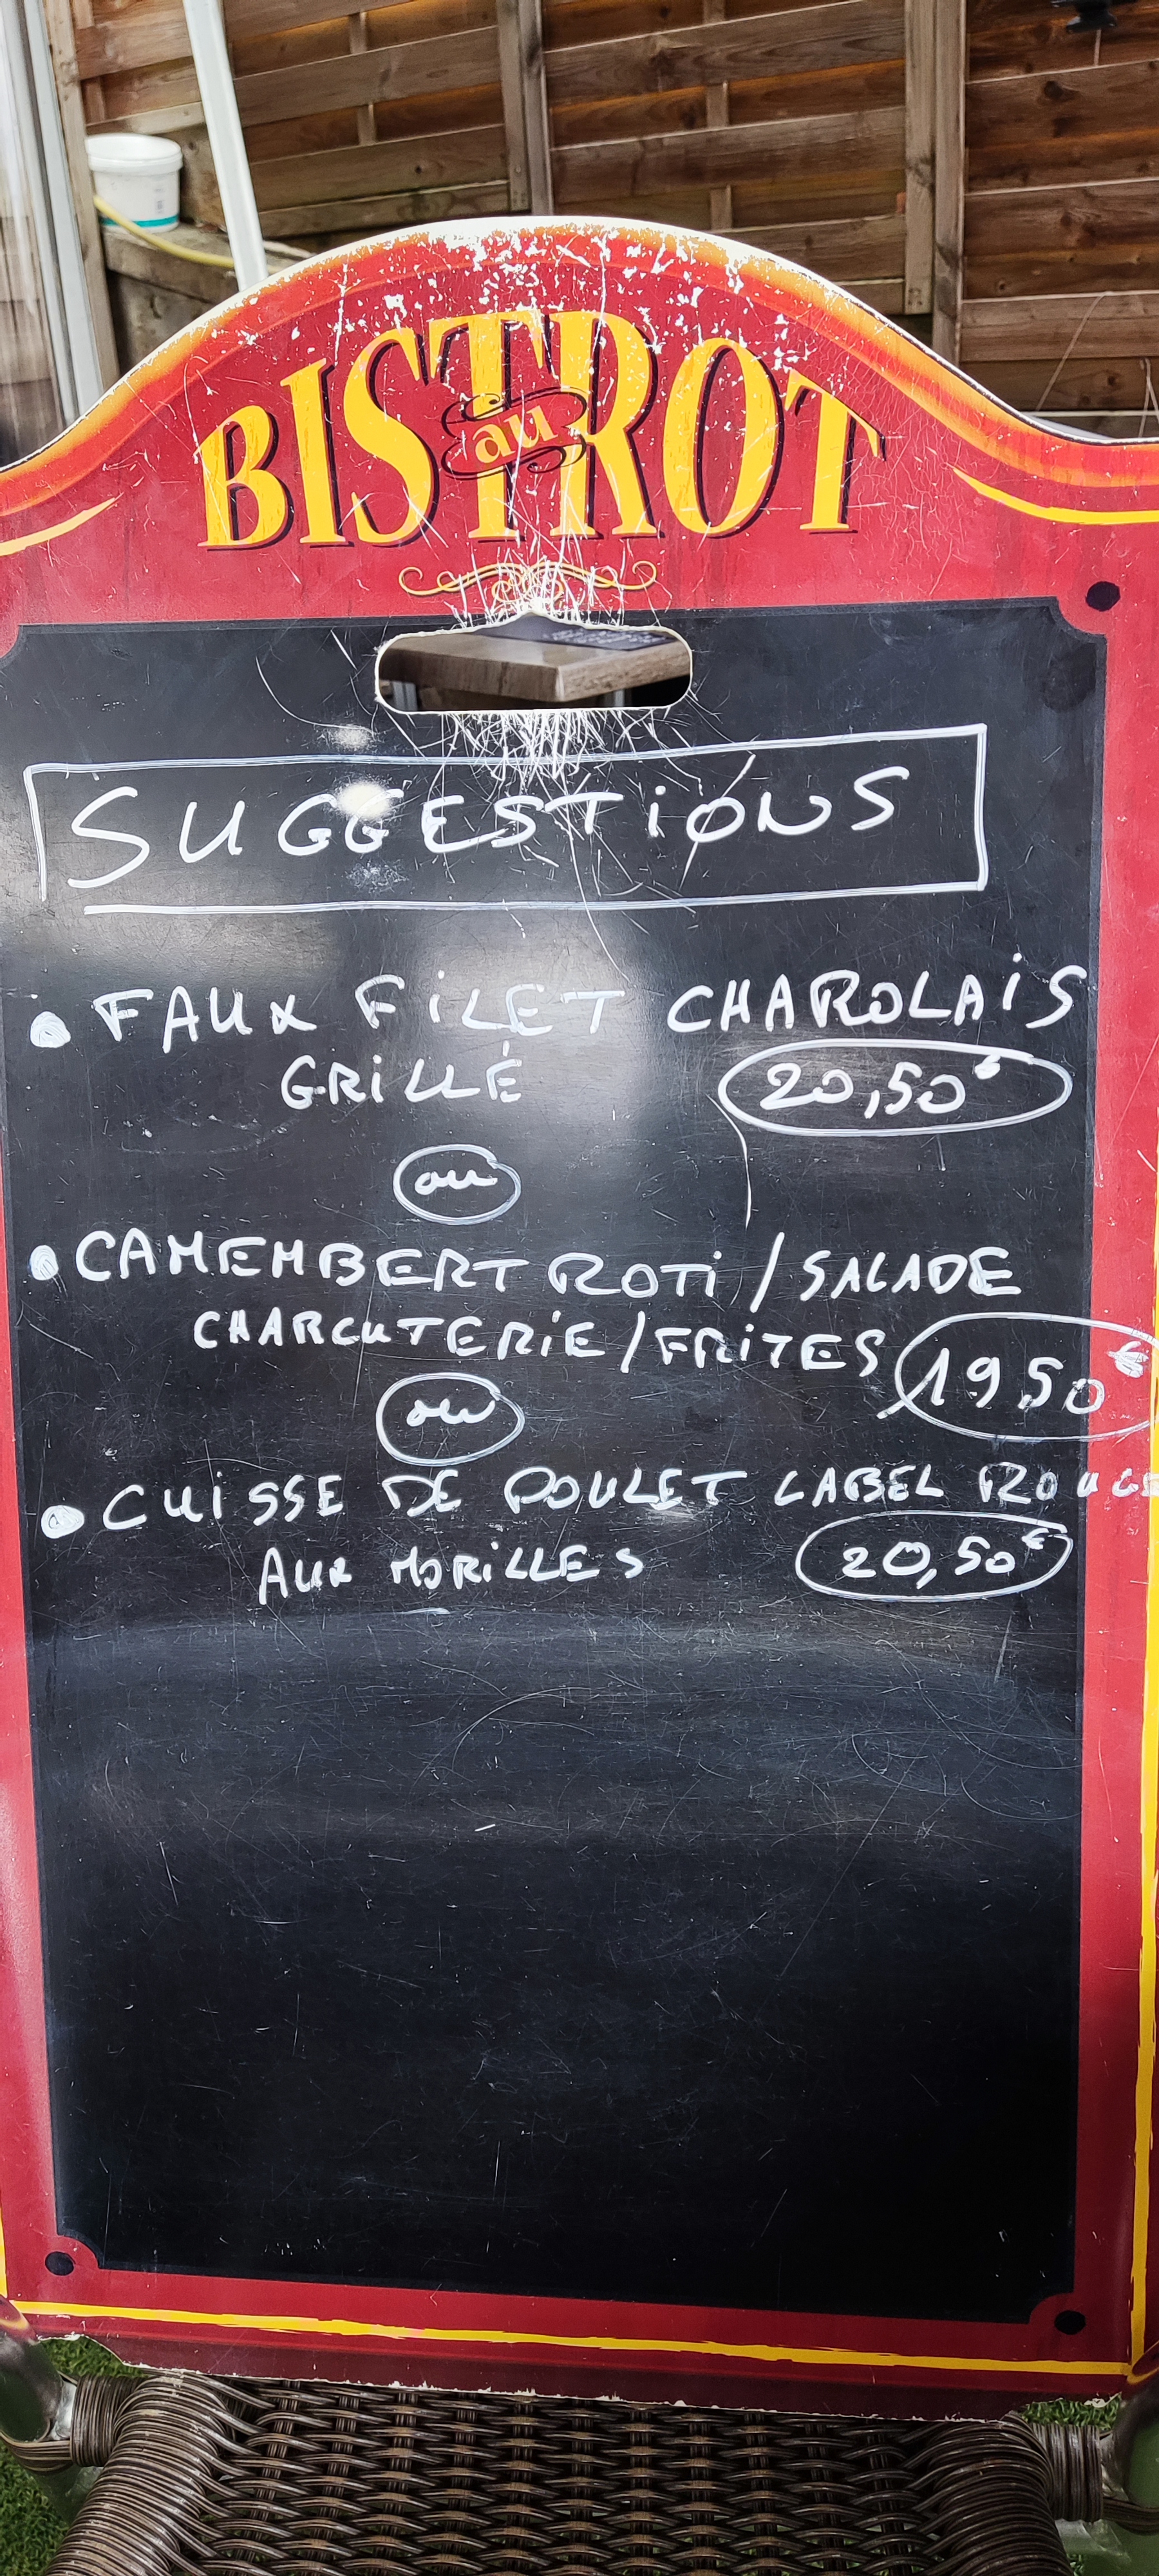 BISTROT
au
SUGGESTIONS
• FAUX FILET CHAROLAIS
GRILLÉ 20,50€
ou
• CAMEMBERT ROTI / SALADE
CHARCUTERIE / FRITES 19 50€
ou
• CUISSE DE POULET LABEL ROUGE
AUX MORILLES 20,50€